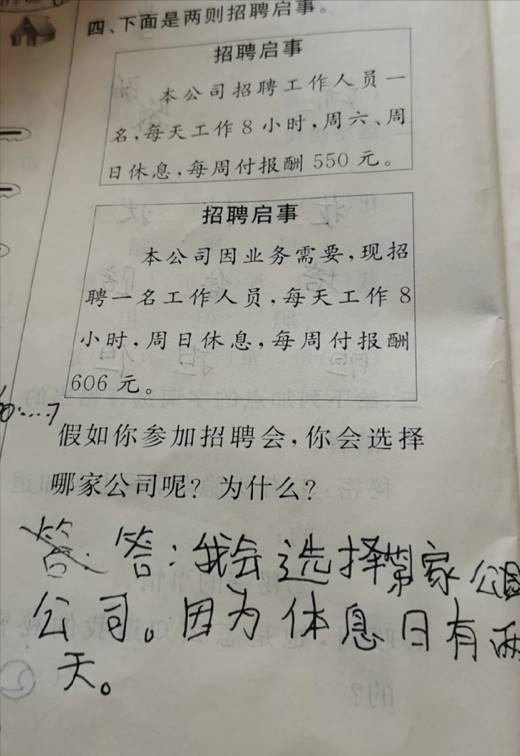 四、下面是两则招聘启事。
招聘启事
本公司招聘工作人员一
名,每天工作8小时,周六、周
日休息,每周付报酬550元。
招聘启事
本公司因业务需要,现招
聘一名工作人员,每天工作8
小时,周日休息,每周付报酬
606元。
假如你参加招聘会,你会选择
哪家公司呢?为什么?
答:我会选择第家
公司。因为休息日有两
天。